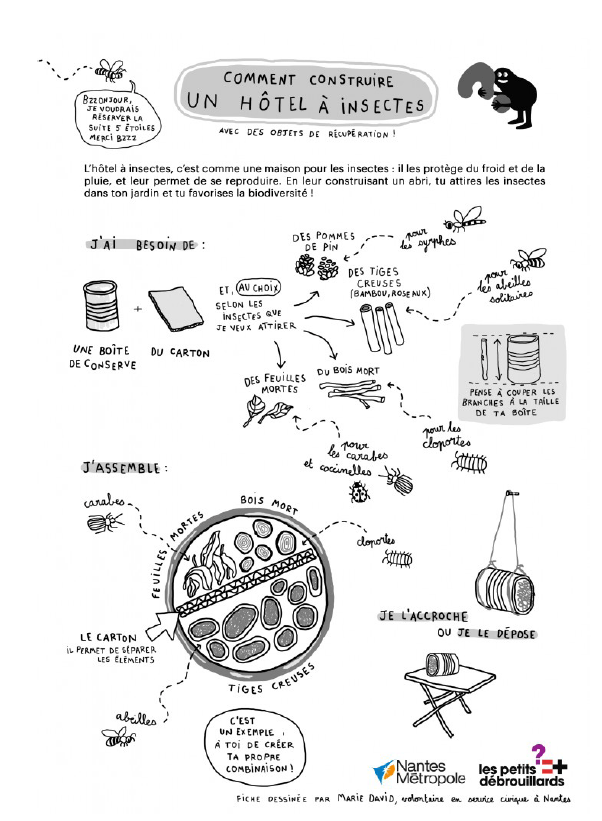 COMMENT CONSTRUIRE
UN HÔTEL À INSECTES
AVEC DES OBJETS DE RÉCUPÉRATION !
BZZONJOUR,
JE VOUDRAIS
RÉSERVER LA
SUITE 5 ÉTOILES
MERCI BZZZ
L'hôtel à insectes, c'est comme une maison pour les insectes : il les protège du froid et de la
pluie, et leur permet de se reproduire. En leur construisant un abri, tu attires les insectes
dans ton jardin et tu favorises la biodiversité !
J'AI BESOIN DE :
UNE BOÎTE
DE CONSERVE
+
DU CARTON
ET, AU CHOIX
SELON LES
INSECTES QUE
JE VEUX ATTIRER
DES POMMES
DE PIN
pour
les syrphes
DES TIGES
CREUSES
(BAMBOU, ROSEAUX)
pour
les abeilles
solitaires
DES FEUILLES
MORTES
DU BOIS MORT
PENSE À COUPER LES
BRANCHES À LA TAILLE
DE TA BOÎTE
pour les
cloportes
pour
les carabes
et coccinelles
J'ASSEMBLE :
carabes
FEUILLES MORTES
BOIS MORT
cloportes
LE CARTON
IL PERMET DE SÉPARER
LES ÉLÉMENTS
TIGES CREUSES
abeilles
C'EST
UN EXEMPLE,
À TOI DE CRÉER
TA PROPRE
COMBINAISON !
JE L'ACCROCHE
OU JE LE DÉPOSE
Nantes
Métropole
les petits
débrouillards
FICHE DESSINÉE PAR MARIE DAVID, volontaire en service civique à Nantes